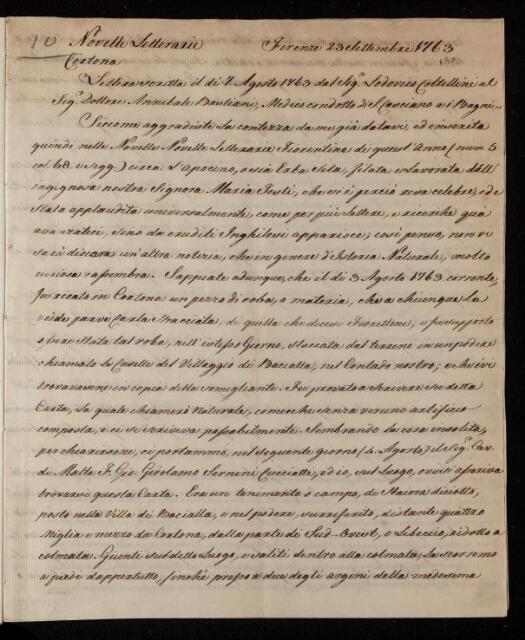 10 Novelle Letterarie Firenze 23 Settembre 1763
Cortona
Lettera scritta il di 7 Agosto 1763 dal Sig. Lodovico Coltellini al
Sig. Dottore Annibale Bastiani, Medico condotto di S. Casciano ai Bagni.
Siccome aggradiste la contezza da me già datavi, ed inserita
quindi nelle Novelle Novelle Letterarie Fiorentine di quest'Anno (num. 5
col. 68. e segg.) circa l'Apocino, o sia Erba Seta, filata e lavorata dall'
ingegnosa nostra Signora Maria Justi, che si è perciò resa celebre, ed è
stata applaudita universalmente, come per più lettere, e ricerche quà
avanzateci, sino da eruditi Inghilesi apparisce; così penso, non vi
sarà discara un'altra notizia, che in genere d'Istoria Naturale, molto
curiosa rassembra. Sappiate adunque, che il di 3 Agosto 1763 corrente,
fu recato in Cortona un pezzo di roba, o materia, che a chiunque la
vidde parve Carta Straccia, di quella che dicesi Fiorettone; e fu supposto
essere stata tal roba, nell'istesso Giorno, staccata dal terreno in un podere
chiamato le Caselle del Villaggio di Bacialla, nel Contado nostro; e che ivi
trovavasene in copia della somigliante. Fu provato a scrivere su della
Carta, la quale chiamerò Naturale, comecche senza veruno artifizio
composta, e ci si scriveva passabilmente. Sembrando la cosa insolita,
per chiarirsene, ci portammo, nel seguente giorno (4. Agosto) il Sig. Cav.
di Malta F. Gio. Girolamo Sernini Cucciatti, ed io, sul luogo, ove si asseriva
trovarsi questa Carta. Era un tenimento o campo, di Staiora diciotto,
posto nella Villa di Bacialla, e nel podere, surriferito, distante quattro
Miglia e mezzo da Cortona, dalla parte di Sud-Ovest, o Libeccio, ridotto a
colmata. Giunti sul detto Luogo, e saliti dentro alla colmata, la scorremo
a piedi dappertutto, finchè presso a due degli argini della medesima